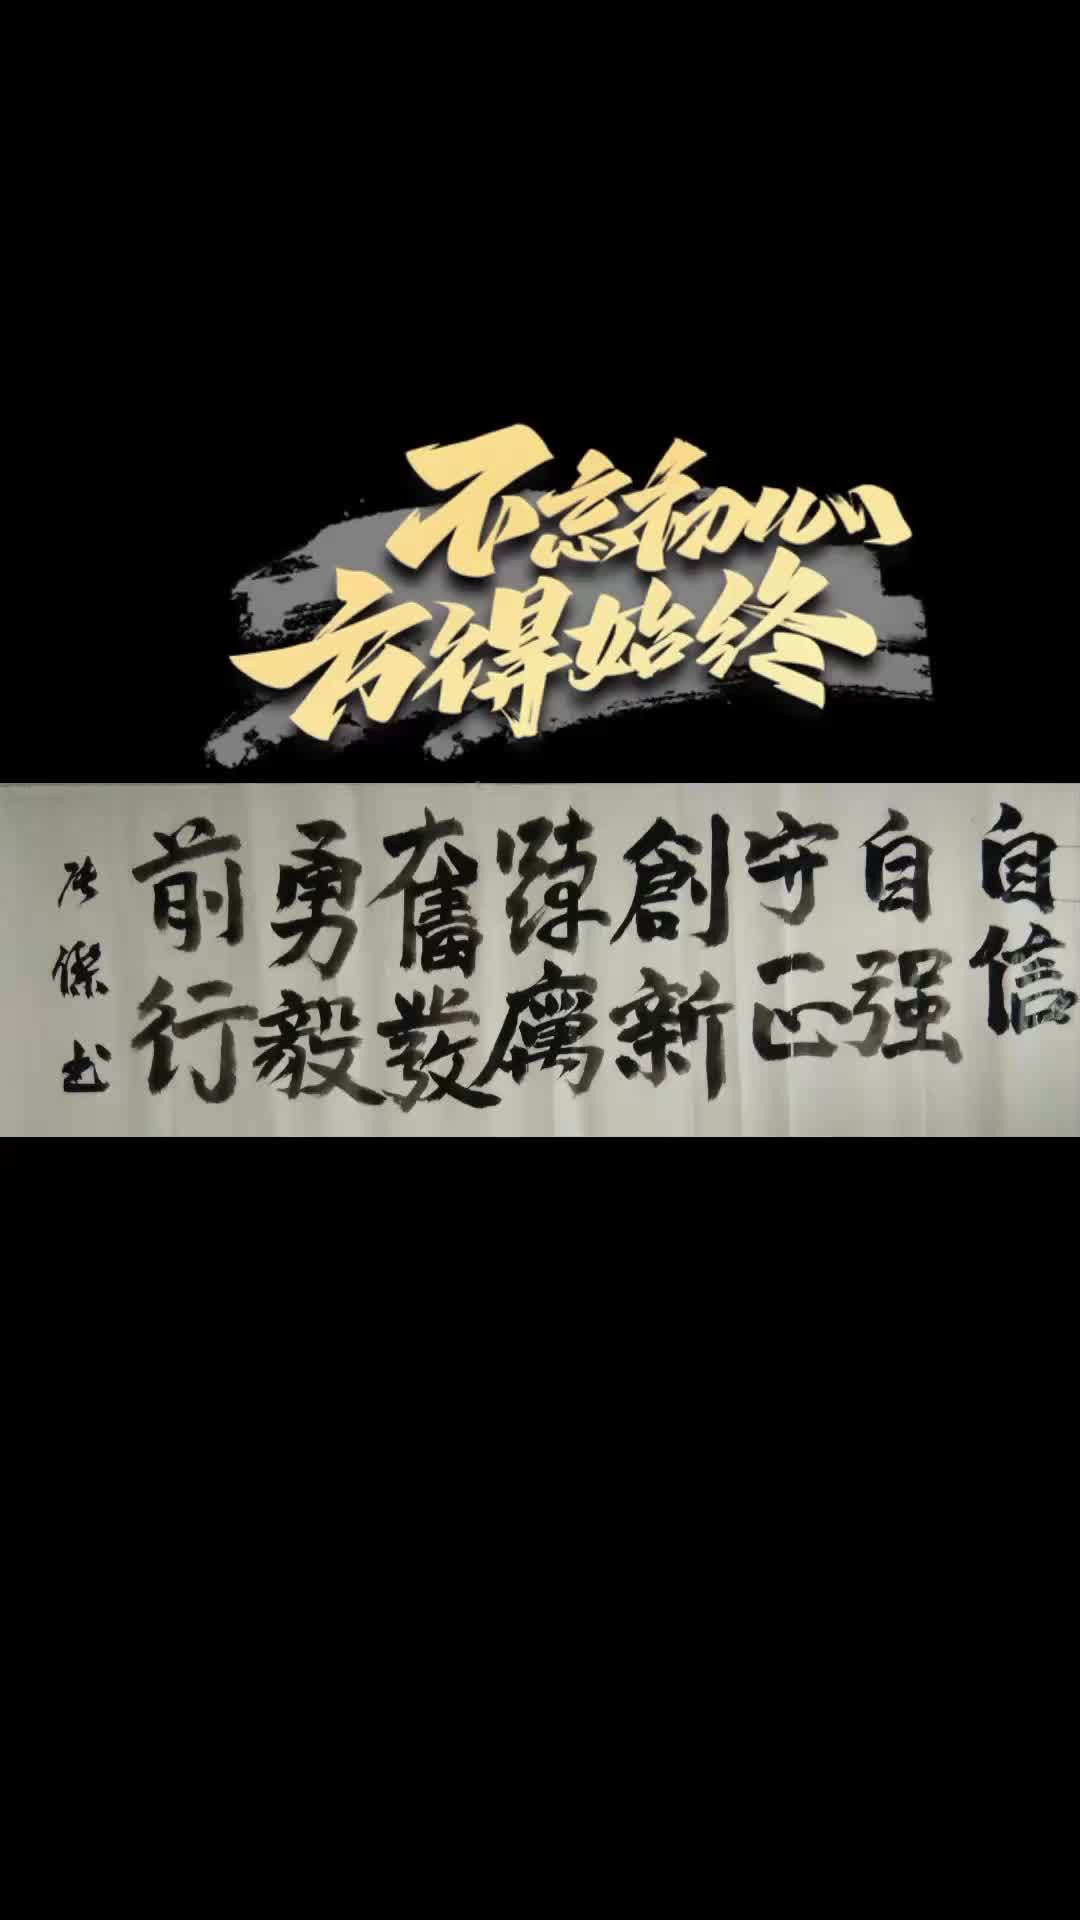 不忘初心
方得始终
自信
自强
守正
創新
踔厲
奮發
勇毅
前行
张傑书